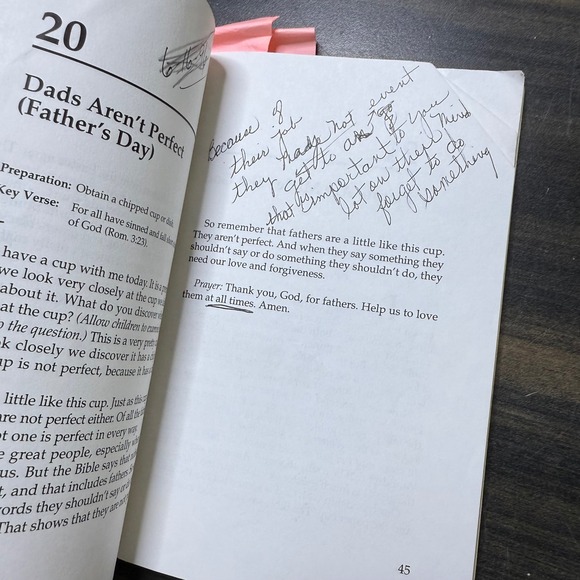 20
Dads Aren't Perfect
(Father's Day)
Preparation: Obtain a chipped cup or dish.
Key Verse: For all have sinned and fall
of God (Rom. 3:23).
have a cup with me today. It is a
we look very closely at the cup
about it. What do you discover
at the cup? (Allow children to
the question.) This is a very pretty
k closely we discover it has a
up is not perfect, because it has a
little like this cup. Just as this
are not perfect either. Of all the
ot one is perfect in every way.
e great people, especially
us. But the Bible says that
t, and that includes fathers.
words they shouldn't say or
That shows that they are
Because of
their job
they may not
get to an event
that is important to you
let on their mind
forget to do
something
So remember that fathers are a little like this cup.
They aren't perfect. And when they say something they
shouldn't say or do something they shouldn't do, they
need our love and forgiveness.
Prayer: Thank you, God, for fathers. Help us to love
them at all times. Amen.
45